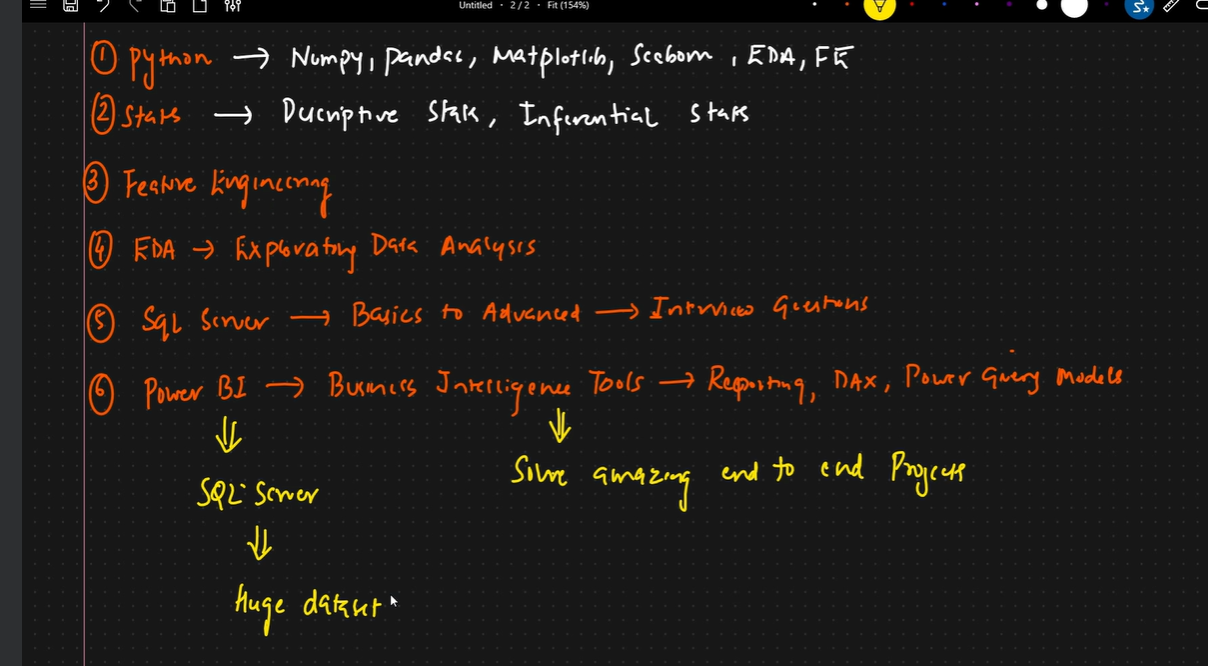 Untitled · 2/2 · Fit (154%)
① Python → Numpy, Pandas, Matplotlib, Seaborn, EDA, FE
② Stats → Descriptive Stats, Inferential Stats
③ Feature Engineering
④ EDA → Exploratory Data Analysis
⑤ SQL Server → Basics to Advanced → Interview Questions
⑥ Power BI → Business Intelligence Tools → Reporting, DAX, Power Query Models
⇓ ⇓
Solve amazing end to end Projects
SQL Server
⇓
Huge dataset